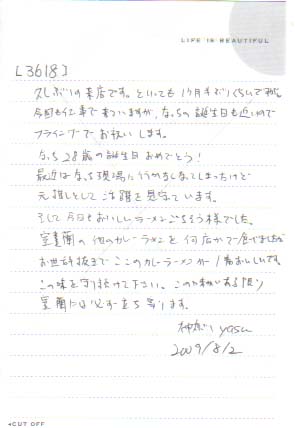 LIFE IS BEAUTIFUL
[3618]
久しぶりの来店です。といっても1ヶ月ぶりくらいですが。
今回も仕事で来ていますが、なっちの誕生日も近いので
フライングでお祝いします。
なっち28歳の誕生日おめでとう!
最近はなっち現場に行かなくなってしまったけど
元推しとして活躍を見守ています。
そして今日もおいしいラーメンごちそう様でした。
室蘭の他のカレーラーメンを何店か食べましたが
お世辞抜きでここのカレーラーメンが1番おいしいです。
この味を守り続けて下さい。この味がある限り
室蘭には必ず立ち寄ります。
神奈川 yasu
2009/8/2
CUT OFF